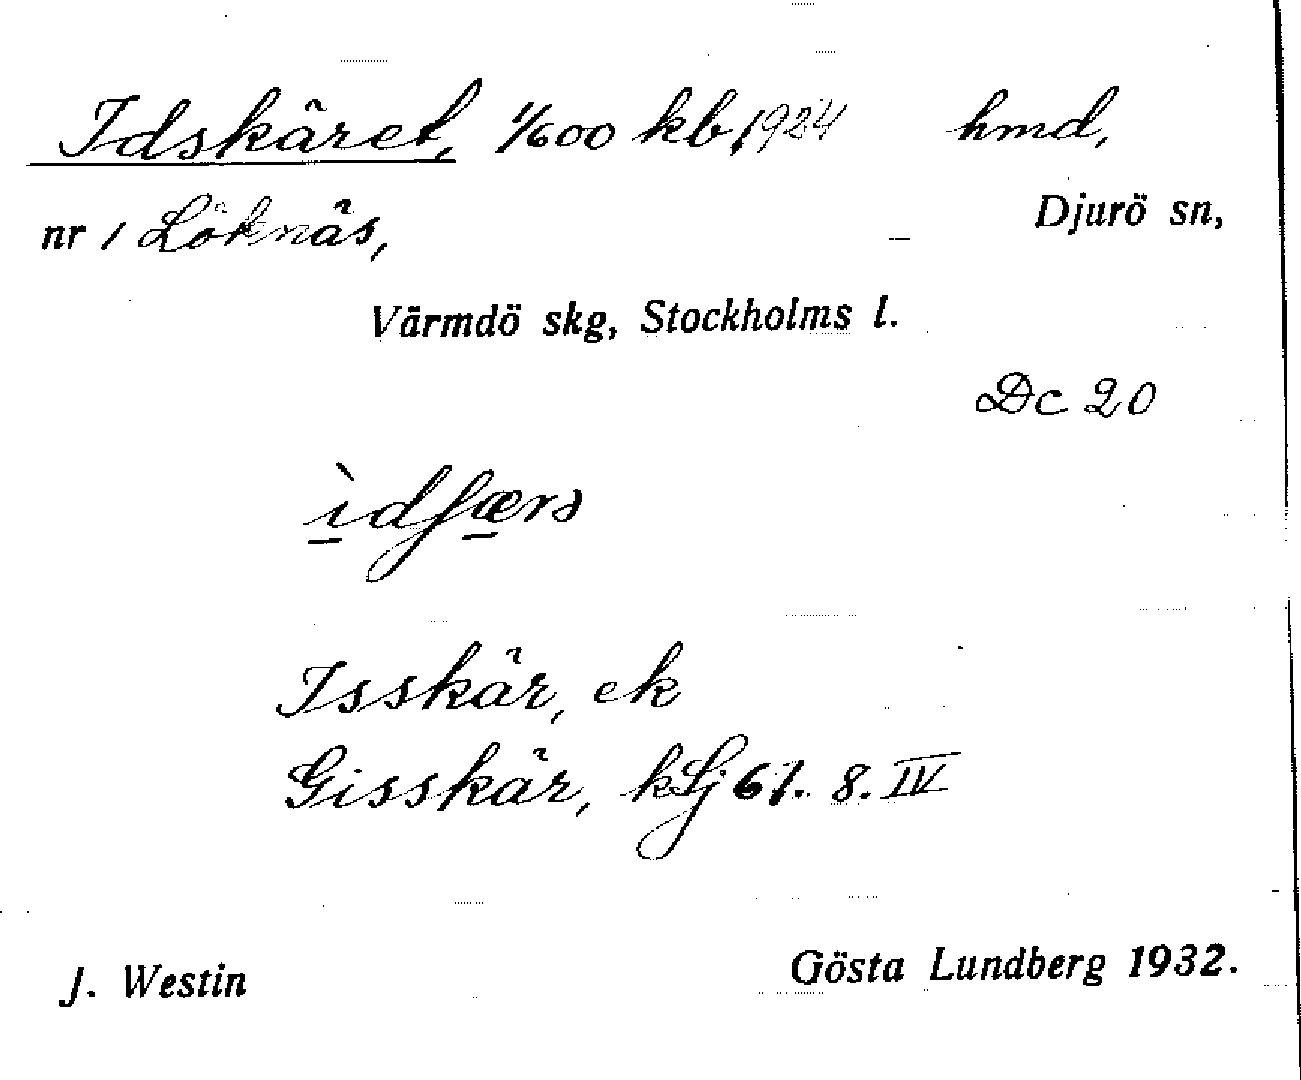 Idskäret, 1/600 kb, 1924 hmd,
nr 1 Löknäs, Djurö sn,
Värmdö skg, Stockholms l.
Dc 20
ìdʃærə
Isskär, ek
Gisskär, kLj 61. 8. IV
J. Westin Gösta Lundberg 1932.